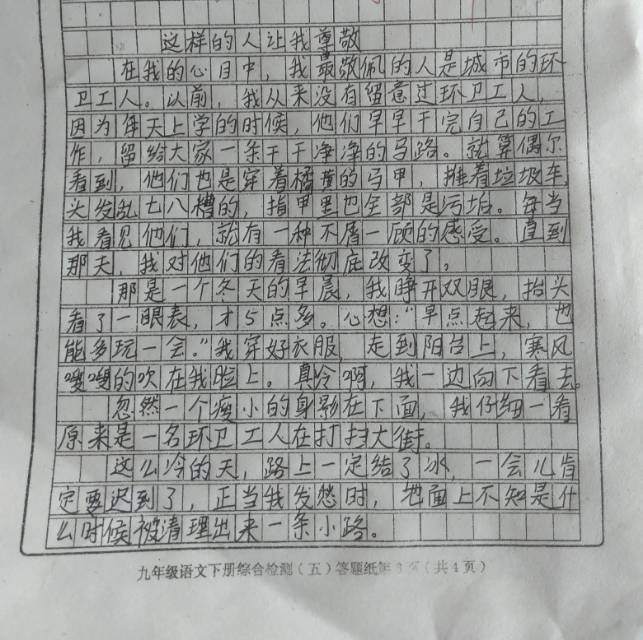 这样的人让我尊敬
在我的心目中，我最敬佩的人是城市的环
卫工人。以前，我从来没有留意过环卫工人，
因为每天上学的时候，他们早早干完自己的工
作，留给大家一条干干净净的马路。就算偶尔
看到，他们也是穿着橘黄的马甲，推着垃圾车，
头发乱七八糟的，指甲里也全部是污垢。每当
我看见他们，就有一种不屑一顾的感受。直到
那天，我对他们的看法彻底改变了。
那是一个冬天的早晨，我睁开双眼，抬头
看了一眼表，才5点多。心想：“早点起来，也
能多玩一会。”我穿好衣服，走到阳台上，寒风
嗖嗖的吹在我脸上。真冷啊，我一边向下看去。
忽然一个瘦小的身影在下面，我仔细一看
原来是一名环卫工人在打扫大街。
这么冷的天，路上一定结了冰，一会儿肯
定要迟到了，正当我发愁时，地面上不知是什
么时候被清理出来一条小路。
九年级语文下册综合检测（五）答题纸第3页（共4页）